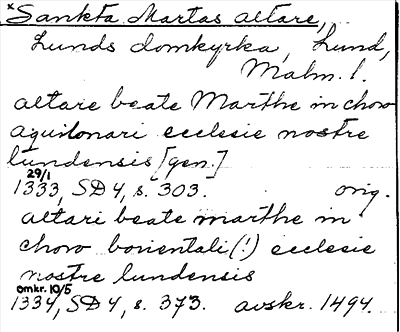 x Sankta Martas altare,
Lunds domkyrka, Lund,
Malm. l.
altare beate Marthe in choro
aquilonari ecclesie nostre
lundensis [gen.]
29/1
1333, SD 4, s. 303. orig.
altari beate marthe in
choro borientali (!) ecclesie
nostre lundensis
omkr. 10/5
1334, SD 4, s. 373. avskr. 1494.